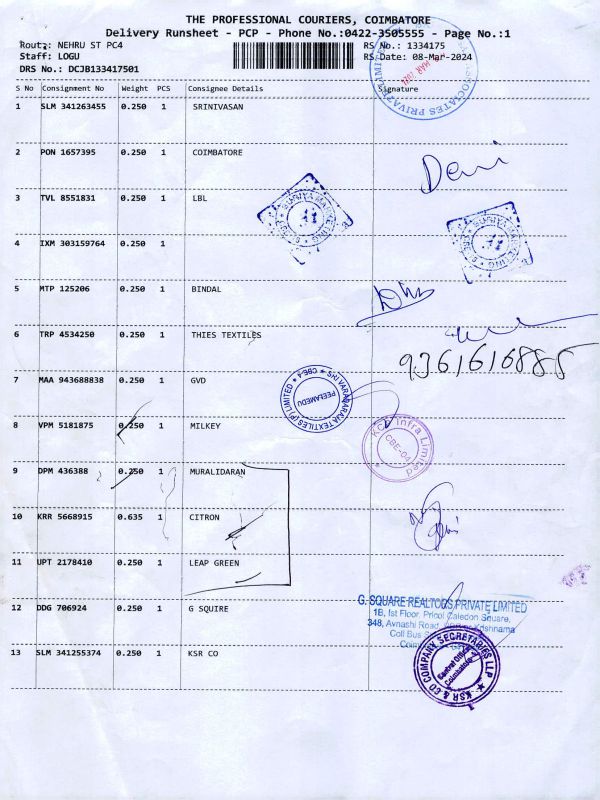 THE PROFESSIONAL COURIERS, COIMBATORE
Delivery Runsheet - PCP - Phone No.:0422-3505555 - Page No.:1
Route: NEHRU ST PC4 RS No.: 1334175
Staff: LOGU RS Date: 08-Mar-2024
DRS No.: DCJB133417501
S No Consignment No Weight PCS Consignee Details Signature
1 SLM 341263455 0.250 1 SRINIVASAN
2 PON 1657395 0.250 1 COIMBATORE
3 TVL 8551831 0.250 1 LBL
4 IXM 303159764 0.250 1
5 MTP 125206 0.250 1 BINDAL
6 TRP 4534250 0.250 1 THIES TEXTILES
9361616885
7 MAA 943688838 0.250 1 GVD
SHRI VARADARAJA TEXTILES (P) LIMITED ★ CBE-4
PEELAMEDU
8 VPM 5181875 0.250 1 MILKEY
Infra Limited
CBE-04
9 DPM 436388 0.250 1 MURALIDARAN
10 KRR 5668915 0.635 1 CITRON
11 UPT 2178410 0.250 1 LEAP GREEN
12 DDG 706924 0.250 1 G SQUIRE
G. SQUARE REALTORS PRIVATE LIMITED
1B, Ist Floor, Pricol Caledon Square,
348, Avnashi Road, Krishnama
13 SLM 341255374 0.250 1 KSR CO
KSR & CO COMPANY SECRETARIES LLP
Central Office
Coimbatore